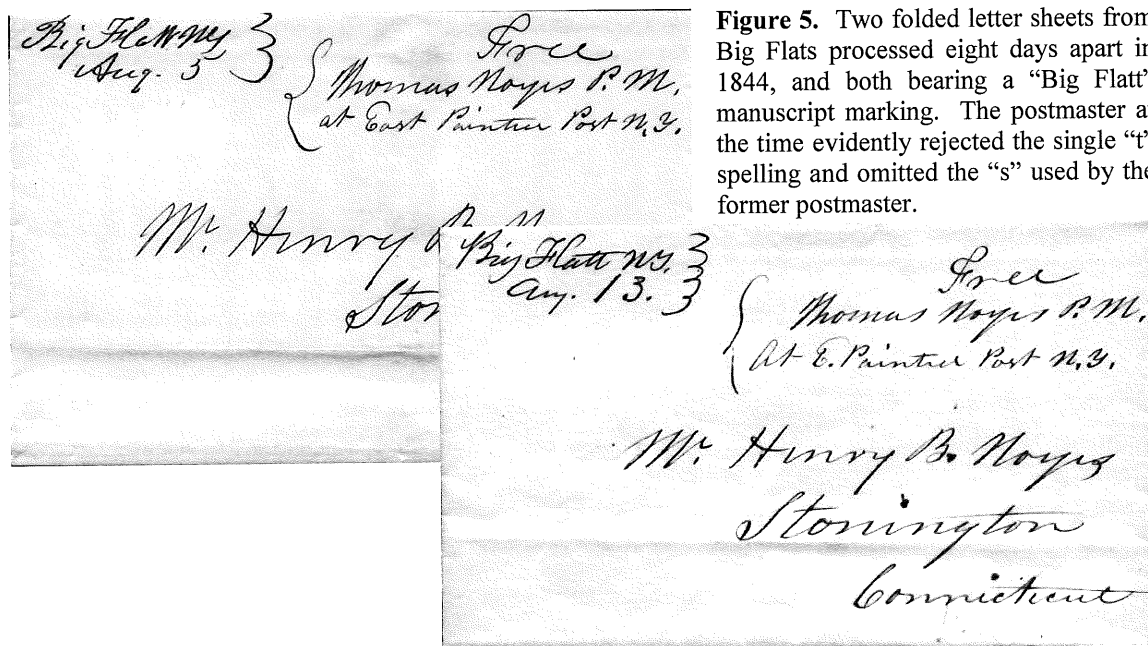 Big Flatt NY
Aug. 5
Free
Thomas Noyes P.M.
at East Painted Post N.Y.
Mr. Henry B
Ston
Figure 5. Two folded letter sheets from
Big Flats processed eight days apart in
1844, and both bearing a “Big Flatt”
manuscript marking. The postmaster at
the time evidently rejected the single “t”
spelling and omitted the “s” used by the
former postmaster.
Big Flatt NY.
Aug. 13.
Free
Thomas Noyes P.M.
At E. Painted Post N.Y.
Mr. Henry B. Noyes
Stonington
Connecticut